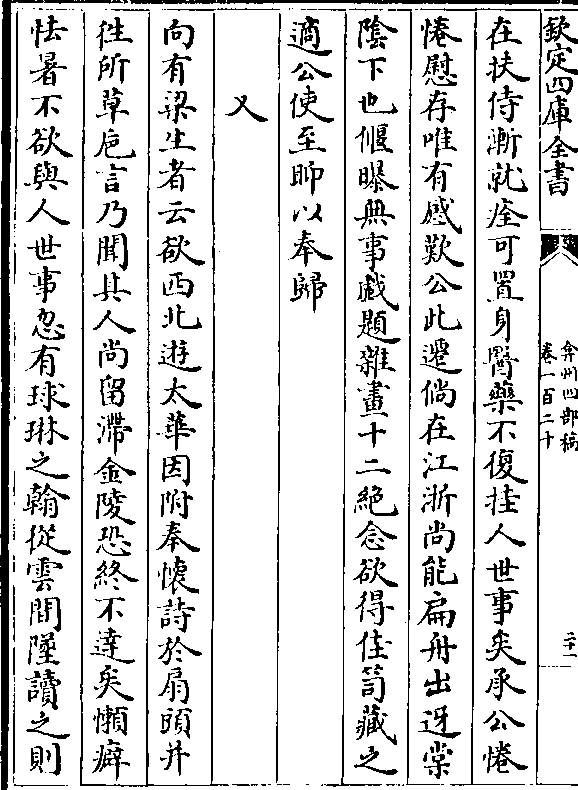 欽定四庫全書
弇州四部稿
卷一百二十
二十一
在扶侍漸就痊可置身醫藥不復挂人世事矣承公惓
惓慰存唯有感歎公此遷倘在江浙尚能扁舟出迓棠
陰下也偃曝無事戲題雜畫十二絕念欲得佳笥藏之
適公使至聊以奉歸
又
向有梁生者云欲西北遊太華因附奉懷詩於扇頭并
徃所草巵言乃聞其人尚留滯金陵恐終不達矣懶癖
怯暑不欲與人世事忽有球琳之翰從雲間墜讀之則